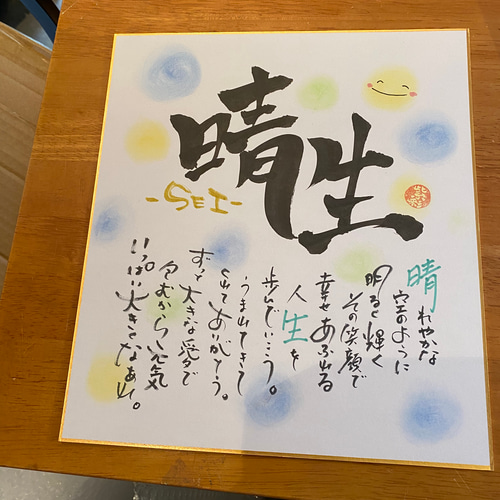 晴生
-SEI-
晴れやかな
空のように
明るく輝く
その笑顔で
幸せあふれる
人生を
歩んでいこう。
うまれてきて
くれてありがとう。
ずっと大きな愛で
包むから元気
いっぱい大きくなあれ。